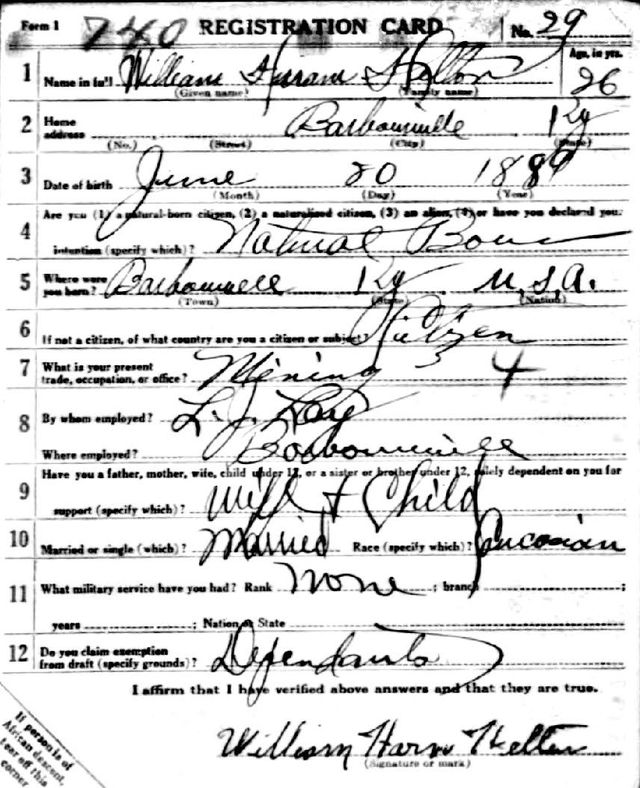 Form 1 740 REGISTRATION CARD No. 29
1 Name in full William Hiram Helton Age, in yrs. 26
(Given name) (Family name)
2 Home address Barbourville Ky
(No.) (Street) (City) (State)
3 Date of birth June 20 1889
(Month) (Day) (Year)
4 Are you (1) a natural-born citizen, (2) a naturalized citizen, (3) an alien, (4) or have you declared your
intention (specify which)? Natural Born
5 Where were you born? Barbourville Ky U.S.A.
(Town) (State) (Nation)
6 If not a citizen, of what country are you a citizen or subject? Citizen
7 What is your present trade, occupation, or office? Mining 3 4
8 By whom employed? L. J.
Where employed? Barbourville
9 Have you a father, mother, wife, child under 12, or a sister or brother under 12, solely dependent on you for
support (specify which)? Wife & Child
10 Married or single (which)? Married Race (specify which)? Caucasian
11 What military service have you had? Rank None ; branch ;
years ; Nation or State
12 Do you claim exemption from draft (specify grounds)? Dependants
I affirm that I have verified above answers and that they are true.
William Helton
(Signature or mark)
If person is of
African descent,
tear off this
corner